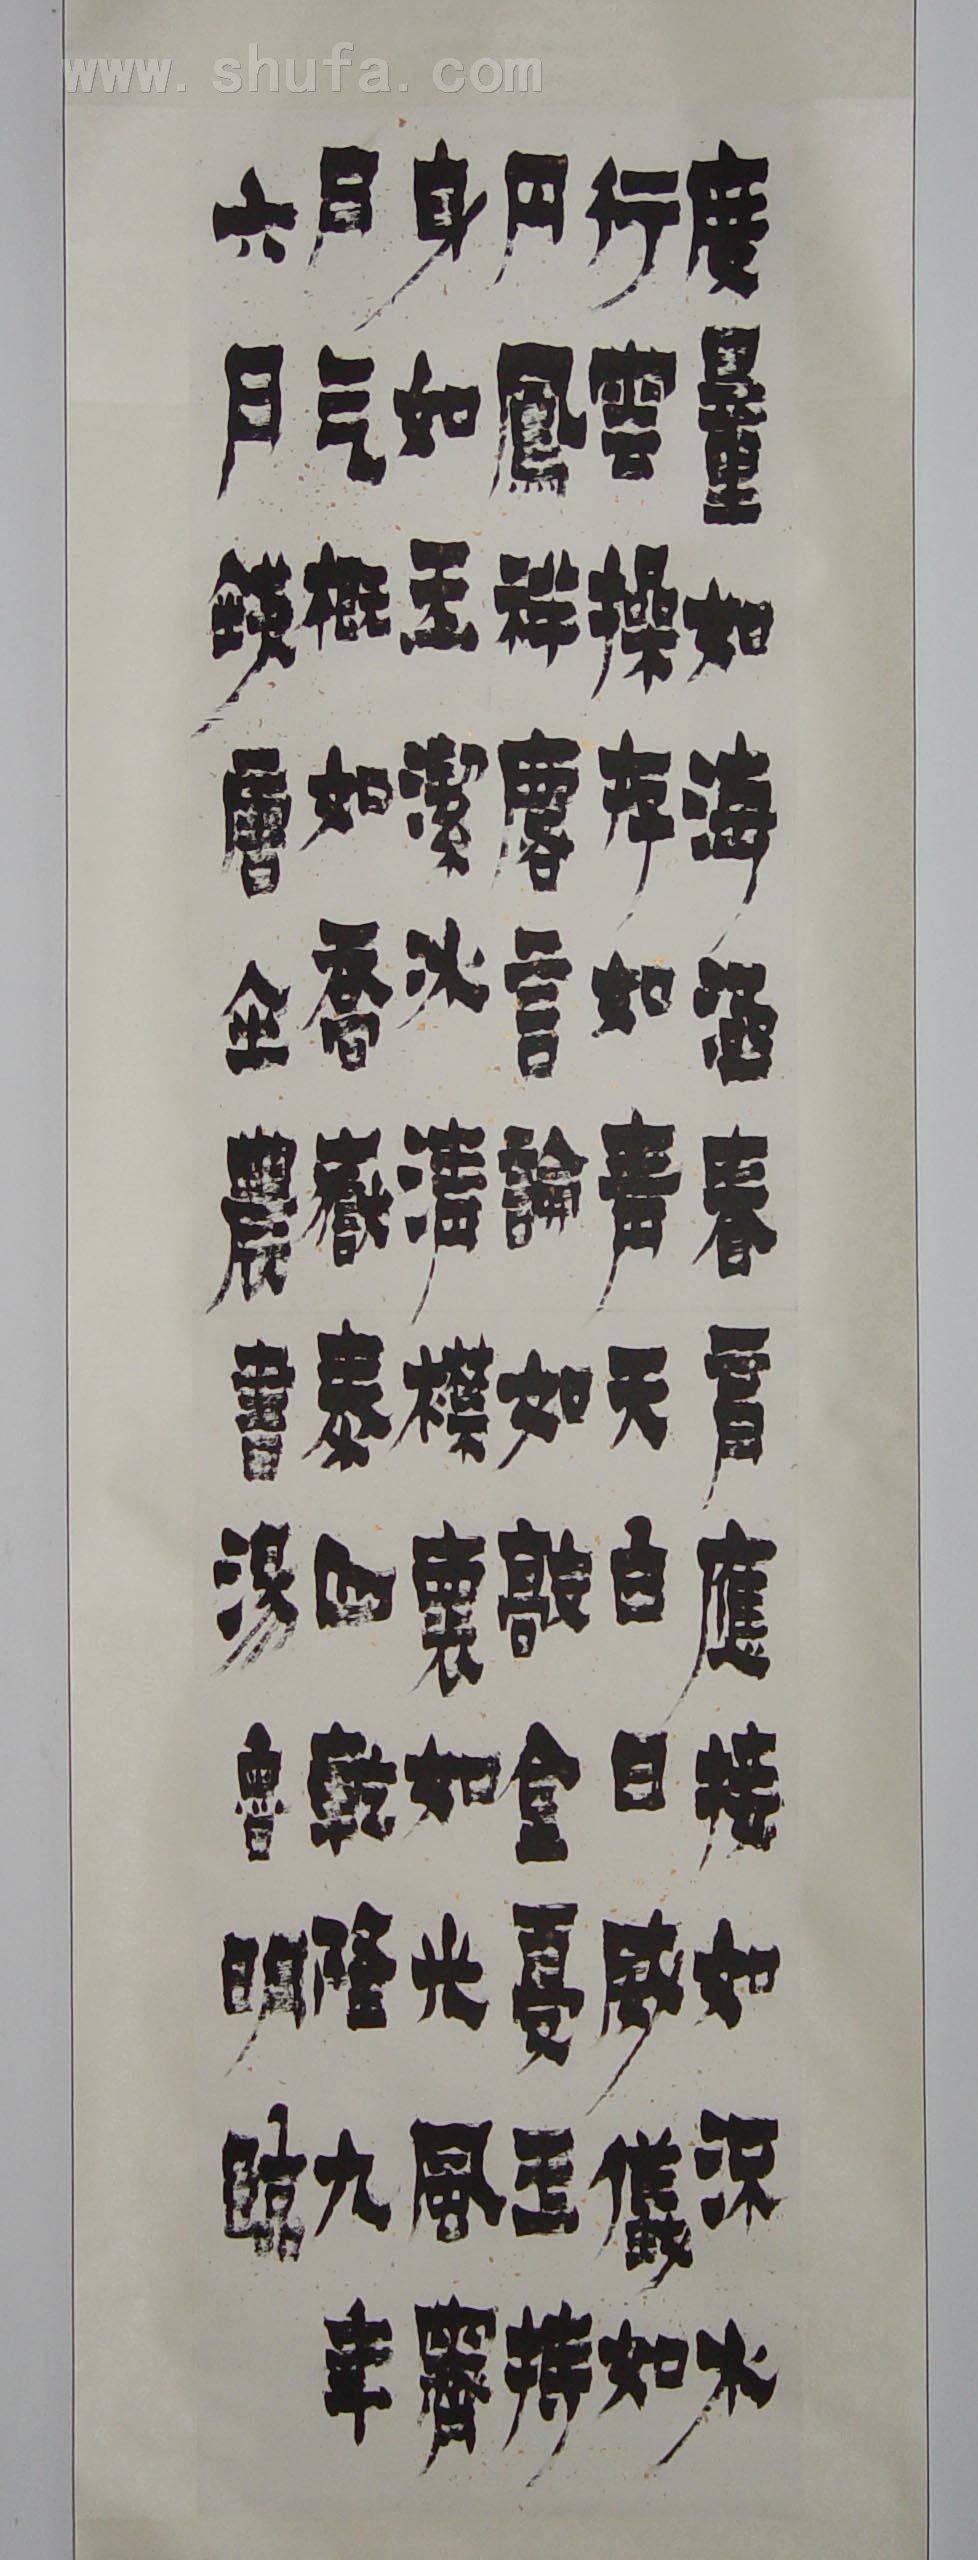 度量如海涵春育應接如流水
行雲操存如青天白日威儀如
丹鳳祥麐言論如敲金戛玉持
身如玉潔冰清襟褱如光風霽
月气概如喬嶽泰山乾隆九年
六月錢唐金農書湯魯明臨
www.shufa.com